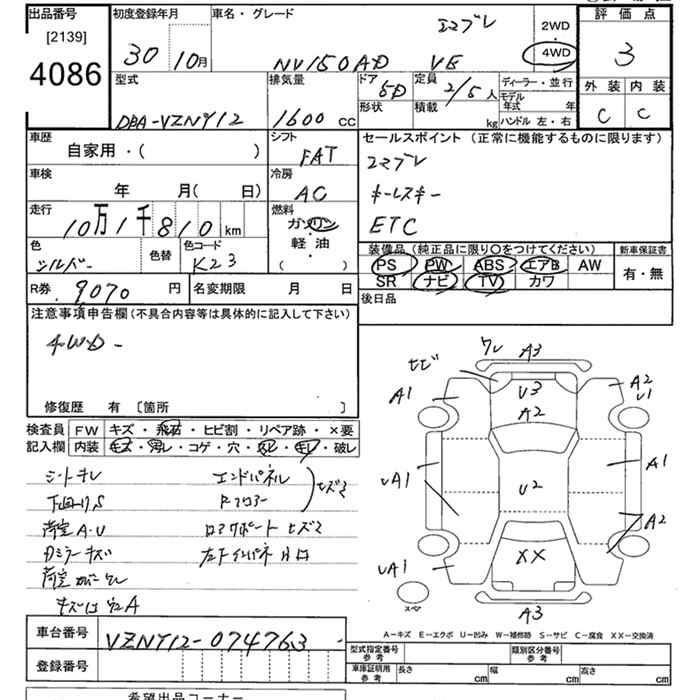 出品番号 初度登録年月 車名・グレード 評価点
[2139] エマブレ 2WD
4086 30 10月 NV150AD VE 4WD 3
型式 排気量 ドア 定員 ディーラー・並行 外装 内装
5D 2/5人 モデル年式 年
DBA-VZNY12 1600 CC 形状 積載 kg ハンドル 左・右 C C
車歴 シフト セールスポイント (正常に機能するものに限ります)
自家用・( ) FAT エマブレ
車検 冷房
年 月( 日) AC キーレスキー
走行 燃料
10万1千810km ガソリン ETC
色 色替 色コード ・軽油 装備品(純正品に限り〇をつけてください) 新車保証書
シルバー K23 ( ) PS PW ABS エアB AW 有・無
SR ナビ TV カワ
R券 9070 円 名変期限 月 日 後日品
注意事項申告欄(不具合内容等は具体的に記入して下さい)
4WD-
修復歴 有 〔箇所 〕
検査員 FW キズ・飛石・ヒビ割・リペア跡・×要
記入欄 内装 キズ・汚レ・コゲ・穴・スレ・キレ・破レ
シートキレ エンドパネル
下回りS Rフロアー ヒズミ
荷室A・U ロアサポートヒズミ
Dミラーキズ
ヒビ ワレ A3
A1 U3 A2 U1
A2
UA1 U2 A1
A2
UA1 XX
スペア A3
A-キズ E-エクボ U-凹み W-補修跡 S-サビ C-腐食 XX-交換済
車台番号 VZNY12-074763
登録番号
型式指定番号 参考 類別区分番号 参考
車庫証明用 参考 長さ cm 幅 cm 高さ cm
希望出品コーナー